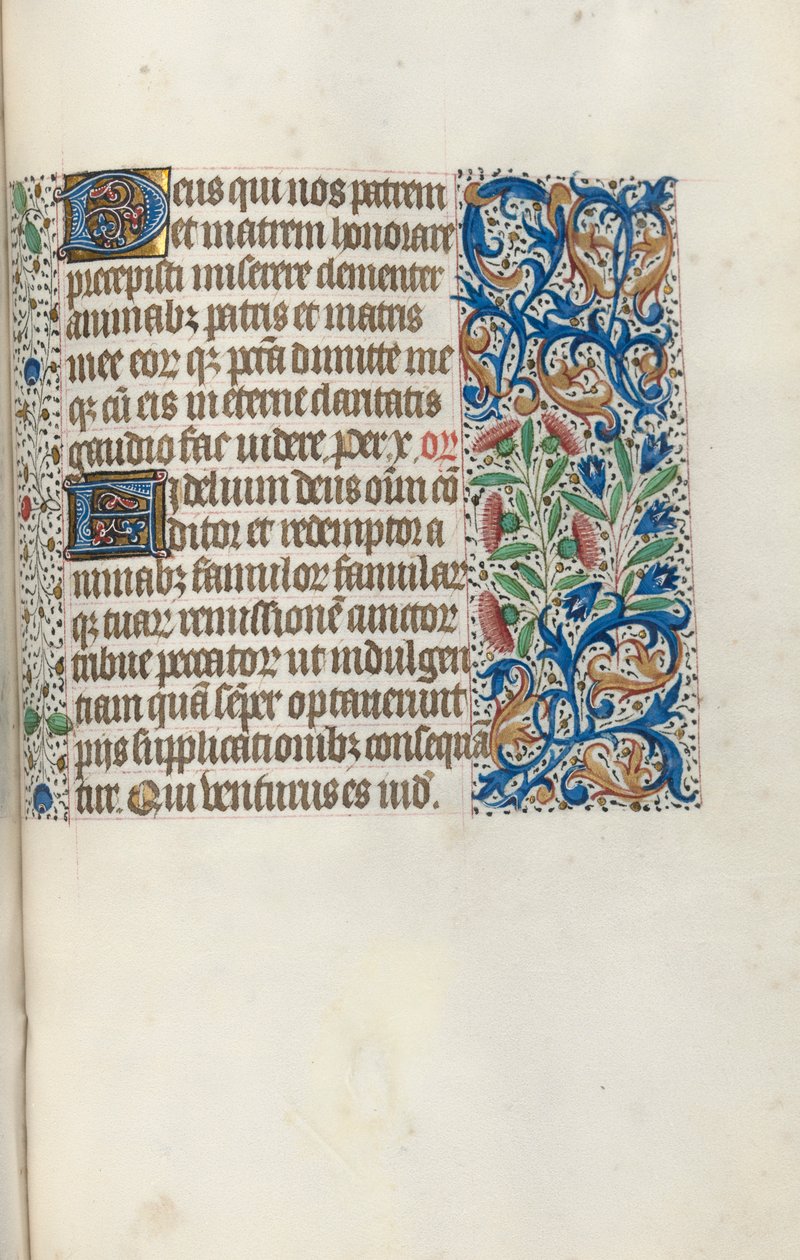 Deus qui nos patrem
et matrem honorare
precepisti miserere clementer
animabꝫ patris et matris
mee eoꝝ qꝫ pctā dimitte me
qꝫ cū eis in eterne claritatis
gaudio fac uidere. Per. x. oꝝ
Fidelium deus oīm cō
ditor et redemptor a
nimabꝫ famuloꝝ famulaꝝ
qꝫ tuaꝝ remissionē cunctoꝝ
tribue peccatoꝝ ut indulgen
tiam quā sēper optauerunt
pijs supplicationibꝫ consequā
tur. Qui venturus es iud'.